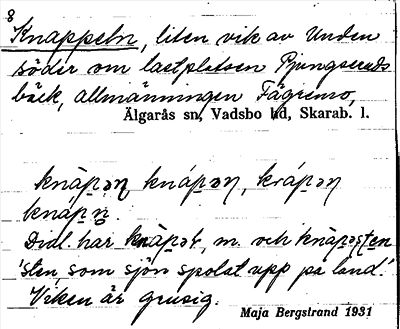 8
Knappeln, liten vik av Unden
söder om lastplatsen Pjungserudsbäck, allmänningen Fägremo,
Älgarås sn, Vadsbo hd, Skarab. l.
knàpəņ, knápəη, krápəη
knáp
Dial. har knàpəɫ, m. och
'sten, som sjön spolat upp på land.'
Viken är grusig.
Maja Bergstrand 1931